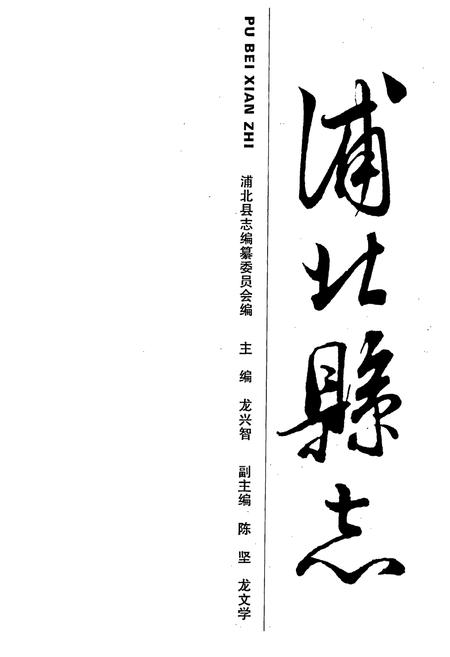 浦北縣志
PU BEI XIAN ZHI
浦北县志编纂委员会编 主编 龙兴智 副主编 陈坚 龙文学